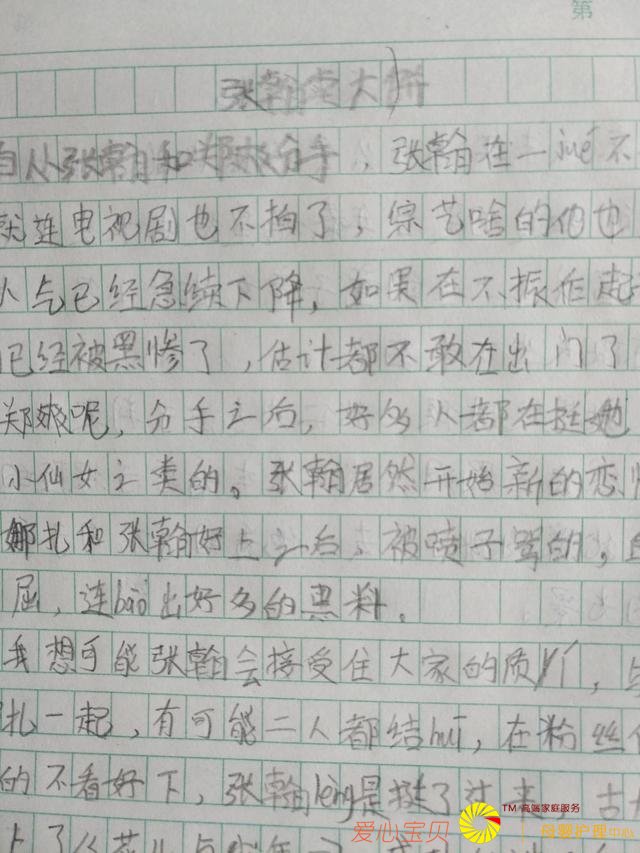 第
张翰卖大饼
自从张翰和郑爽分手，张翰在一jué不
就连电视剧也不拍了，综艺啥的他也
人气已经急续下降，如果在不振作起
已经被黑惨了，估计都不敢在出门了
郑爽呢，分手之后，好多人都在挺她
小仙女之类的。张翰居然开始新的恋
娜扎和张翰好上之后，被喷子骂的，
屈，连bào出好多的黑料。
我想可能张翰会接受住大家的质
扎一起，有可能二人都结hūn，在粉丝
的不看好下，张翰lèng是挺了过来
上了
爱心宝贝
TM 高端家庭服务
母婴护理中心